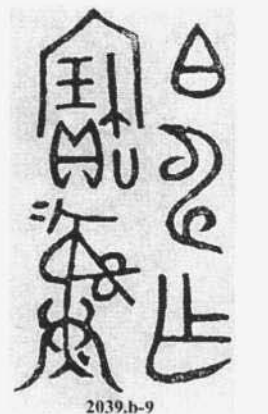 白乍
寶彝
2039.b-9